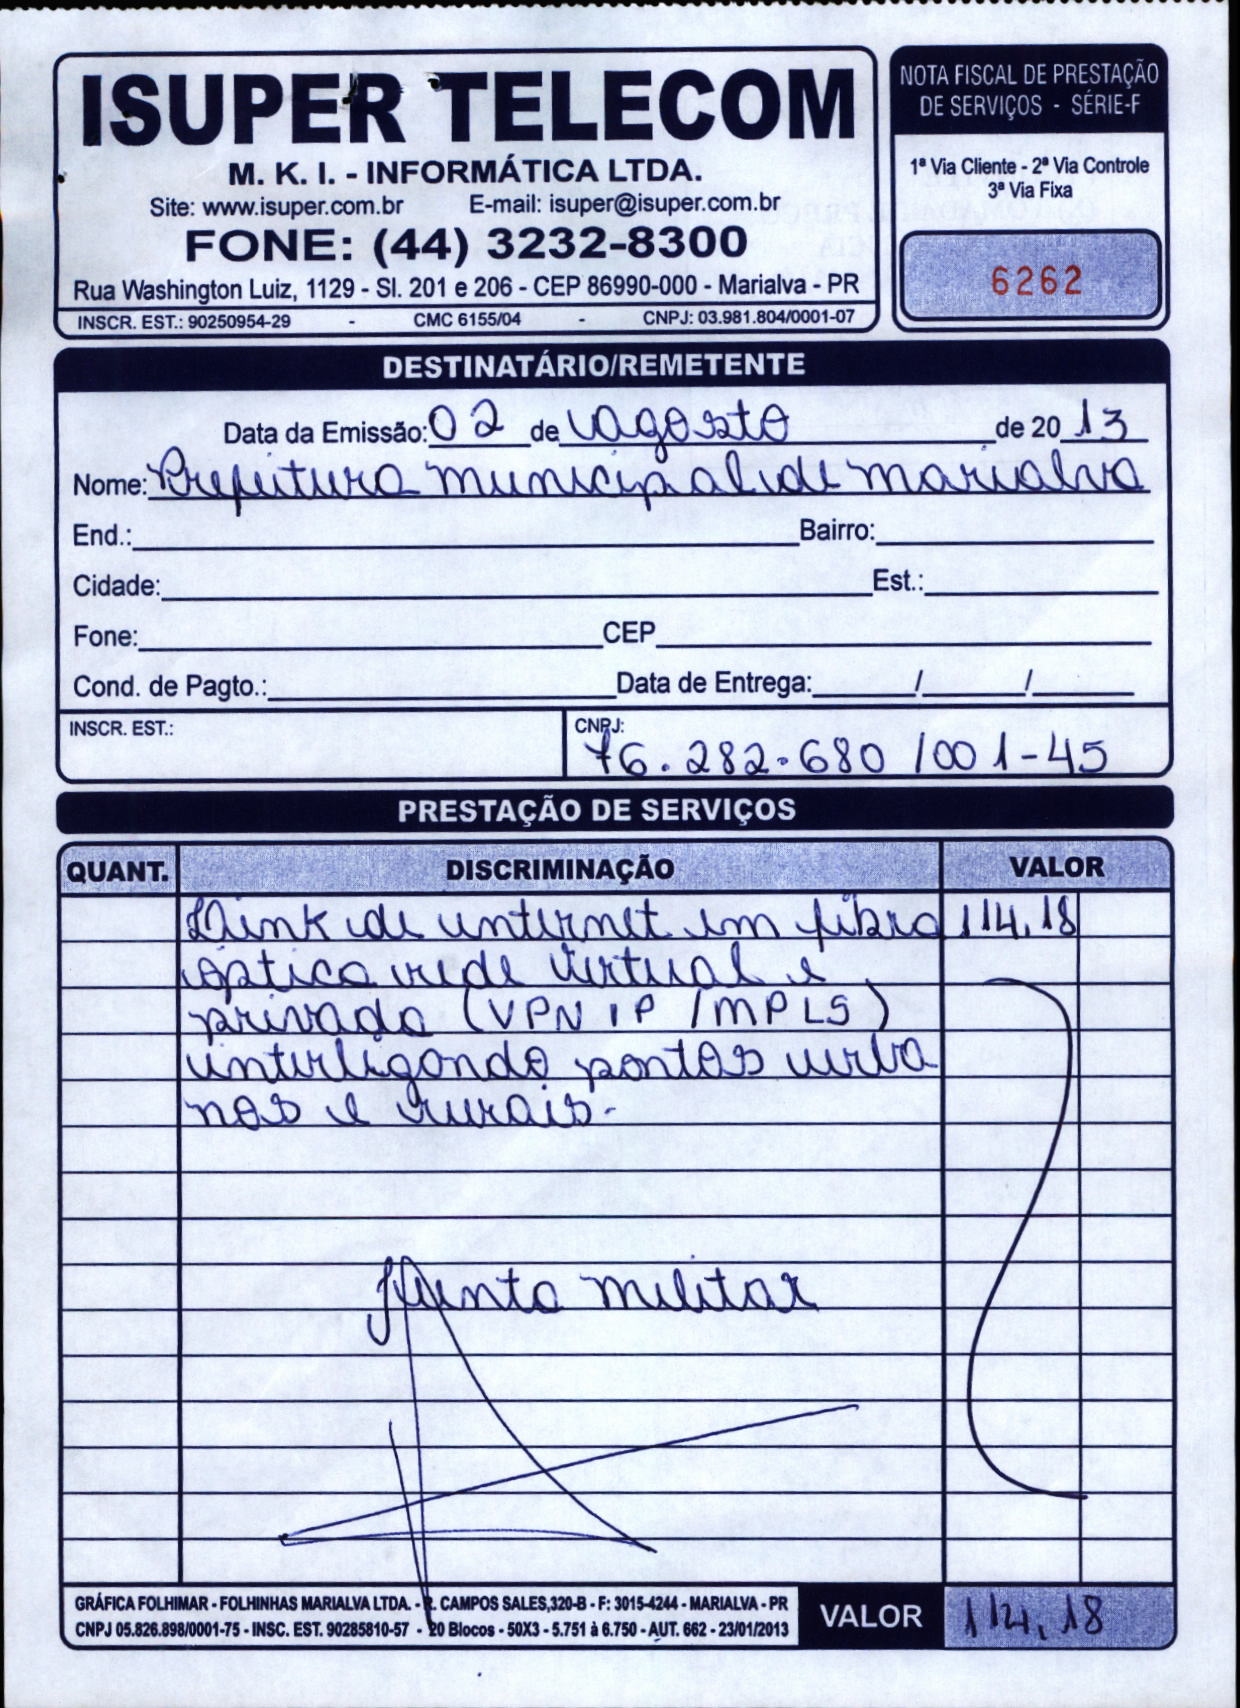 ISUPER TELECOM
M. K. I. - INFORMÁTICA LTDA.
Site: www.isuper.com.br E-mail: isuper@isuper.com.br
FONE: (44) 3232-8300
Rua Washington Luiz, 1129 - Sl. 201 e 206 - CEP 86990-000 - Marialva - PR
INSCR. EST.: 90250954-29 - CMC 6155/04 - CNPJ: 03.981.804/0001-07
NOTA FISCAL DE PRESTAÇÃO
DE SERVIÇOS - SÉRIE-F
1ª Via Cliente - 2ª Via Controle
3ª Via Fixa
6262
DESTINATÁRIO/REMETENTE
Data da Emissão: 02 de agosto de 20 13
Nome: Prefeitura municipal de marialva
End.: Bairro:
Cidade: Est.:
Fone: CEP
Cond. de Pagto.: Data de Entrega: / /
INSCR. EST.: CNPJ:
76.282.680/001-45
PRESTAÇÃO DE SERVIÇOS
QUANT. DISCRIMINAÇÃO VALOR
Link de internet em fibra 114,18
óptica rede virtual e
privada (VPN IP /MPLS)
interligando pontos urba
nos e rurais.
Junta militar
GRÁFICA FOLHIMAR - FOLHINHAS MARIALVA LTDA. - R. CAMPOS SALES,320-B - F: 3015-4244 - MARIALVA - PR
CNPJ 05.826.898/0001-75 - INSC. EST. 90285810-57 - 20 Blocos - 50X3 - 5.751 à 6.750 - AUT. 662 - 23/01/2013
VALOR 114,18